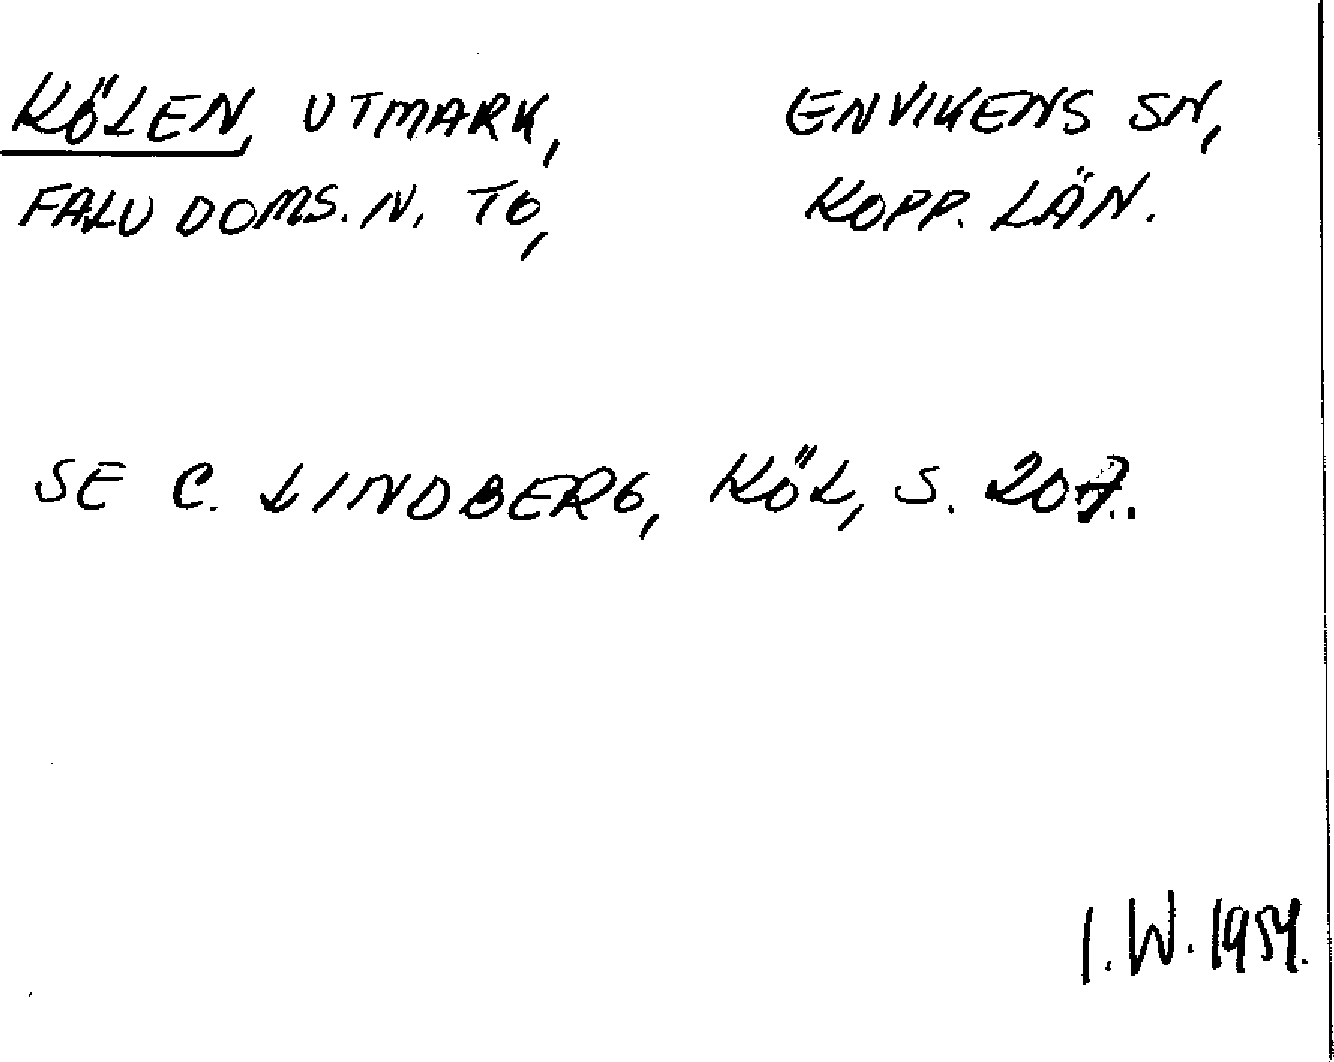 KÖLEN, UTMARK, ENVIKENS SN,
FALU DOMS. N. TG, KOPP. LÄN.
SE C. LINDBERG, KÖL, S. 207.
I. W. 1954.